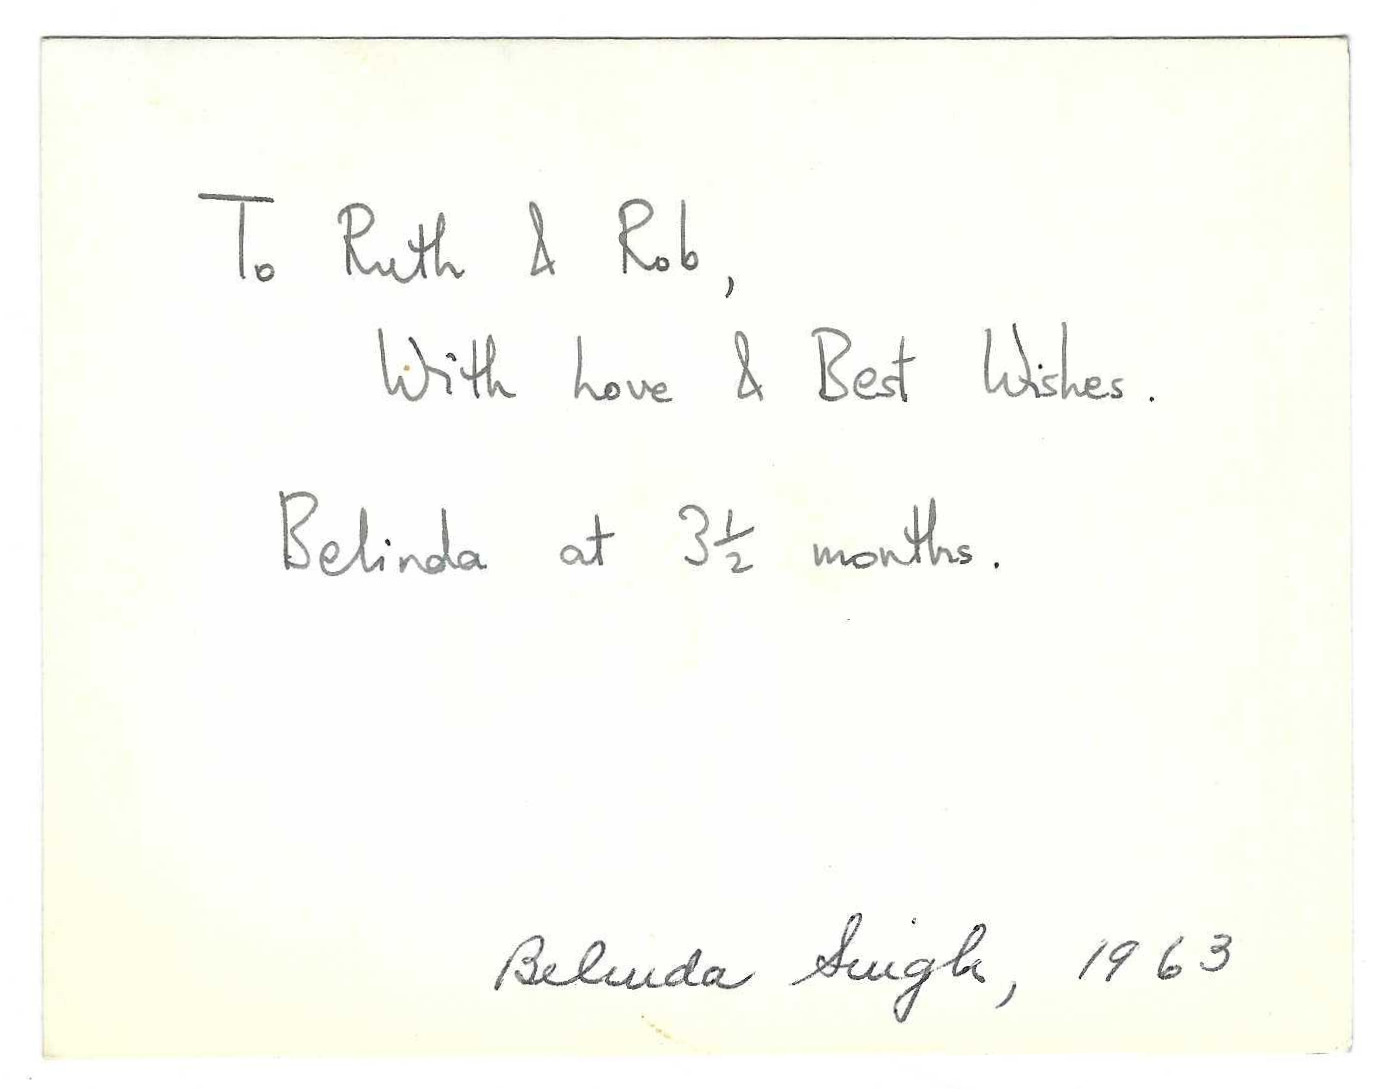 To Ruth & Rob,
With Love & Best Wishes.
Belinda at 3½ months.
Belinda Singh, 1963